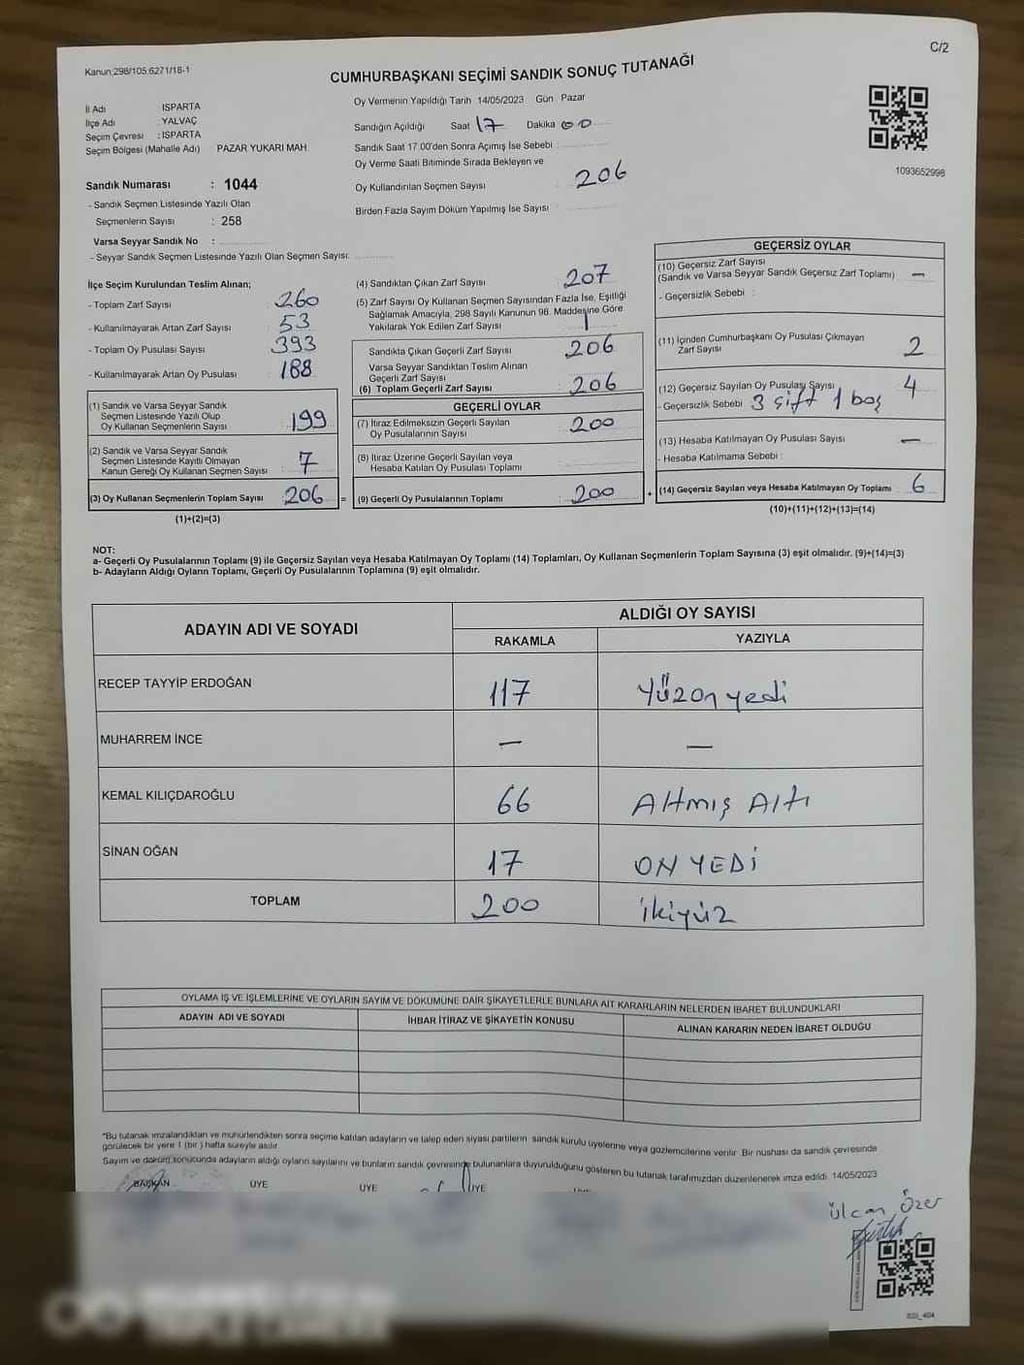 C/2
Kanun:298/105.6271/18-1
CUMHURBAŞKANI SEÇİMİ SANDIK SONUÇ TUTANAĞI
İl Adı ISPARTA
İlçe Adı YALVAÇ
Seçim Çevresi : ISPARTA
Seçim Bölgesi (Mahalle Adı) PAZAR YUKARI MAH.
Sandık Numarası : 1044
- Sandık Seçmen Listesinde Yazılı Olan
Seçmenlerin Sayısı : 258
Varsa Seyyar Sandık No :
- Seyyar Sandık Seçmen Listesinde Yazılı Olan Seçmen Sayısı:
Oy Vermenin Yapıldığı Tarih 14/05/2023 Gün Pazar
Sandığın Açıldığı Saat 17 Dakika 00
Sandık Saat 17.00'den Sonra Açımış İse Sebebi :
Oy Verme Saati Bitiminde Sırada Bekleyen ve
Oy Kullandırılan Seçmen Sayısı 206
Birden Fazla Sayım Döküm Yapılmış İse Sayısı :
1093652998
İlçe Seçim Kurulundan Teslim Alınan;
- Toplam Zarf Sayısı 260
- Kullanılmayarak Artan Zarf Sayısı 53
- Toplam Oy Pusulası Sayısı 393
- Kullanılmayarak Artan Oy Pusulası 188
(1) Sandık ve Varsa Seyyar Sandık
Seçmen Listesinde Yazılı Olup
Oy Kullanan Seçmenlerin Sayısı 199
(2) Sandık ve Varsa Seyyar Sandık
Seçmen Listesinde Kayıtlı Olmayan
Kanun Gereği Oy Kullanan Seçmen Sayısı 7
(3) Oy Kullanan Seçmenlerin Toplam Sayısı 206 =
(1)+(2)=(3)
(4) Sandıktan Çıkan Zarf Sayısı 207
(5) Zarf Sayısı Oy Kullanan Seçmen Sayısından Fazla İse, Eşitliği
Sağlamak Amacıyla, 298 Sayılı Kanunun 98. Maddesine Göre
Yakılarak Yok Edilen Zarf Sayısı 1
Sandıkta Çıkan Geçerli Zarf Sayısı 206
Varsa Seyyar Sandıktan Teslim Alınan
Geçerli Zarf Sayısı
(6) Toplam Geçerli Zarf Sayısı 206
GEÇERLİ OYLAR
(7) İtiraz Edilmeksizin Geçerli Sayılan
Oy Pusulalarının Sayısı 200
(8) İtiraz Üzerine Geçerli Sayılan veya
Hesaba Katılan Oy Pusulası Toplamı
(9) Geçerli Oy Pusulalarının Toplamı : 200
GEÇERSİZ OYLAR
(10) Geçersiz Zarf Sayısı
(Sandık ve Varsa Seyyar Sandık Geçersiz Zarf Toplamı) —
- Geçersizlik Sebebi :
(11) İçinden Cumhurbaşkanı Oy Pusulası Çıkmayan
Zarf Sayısı 2
(12) Geçersiz Sayılan Oy Pusulası Sayısı 4
- Geçersizlik Sebebi 3 çift 1 boş
(13) Hesaba Katılmayan Oy Pusulası Sayısı —
- Hesaba Katılmama Sebebi :
(14) Geçersiz Sayılan veya Hesaba Katılmayan Oy Toplamı 6
(10)+(11)+(12)+(13)=(14)
NOT:
a- Geçerli Oy Pusulalarının Toplamı (9) ile Geçersiz Sayılan veya Hesaba Katılmayan Oy Toplamı (14) Toplamları, Oy Kullanan Seçmenlerin Toplam Sayısına (3) eşit olmalıdır. (9)+(14)=(3)
b- Adayların Aldığı Oyların Toplamı, Geçerli Oy Pusulalarının Toplamına (9) eşit olmalıdır.
ADAYIN ADI VE SOYADI ALDIĞI OY SAYISI
RAKAMLA YAZIYLA
RECEP TAYYİP ERDOĞAN 117 Yüzon yedi
MUHARREM İNCE — —
KEMAL KILIÇDAROĞLU 66 Altmış Altı
SİNAN OĞAN 17 ON YEDİ
TOPLAM 200 ikiyüz
OYLAMA İŞ VE İŞLEMLERİNE VE OYLARIN SAYIM VE DÖKÜMÜNE DAİR ŞİKAYETLERLE BUNLARA AİT KARARLARIN NELERDEN İBARET BULUNDUKLARI
ADAYIN ADI VE SOYADI İHBAR İTİRAZ VE ŞİKAYETİN KONUSU ALINAN KARARIN NEDEN İBARET OLDUĞU
*Bu tutanak imzalandıktan ve mühürlendikten sonra seçime katılan adayların ve talep eden siyasi partilerin sandık kurulu üyelerine veya gözlemcilerine verilir. Bir nüshası da sandık çevresinde
görülecek bir yere 1 (bir) hafta süreyle asılır.
Sayım ve döküm sonucunda adayların aldığı oyların sayılarını ve bunların sandık çevresinde bulunanlara duyurulduğunu gösteren bu tutanak tarafımızdan düzenlenerek imza edildi. 14/05/2023
BAŞKAN ÜYE ÜYE ÜYE
ülcan Özer